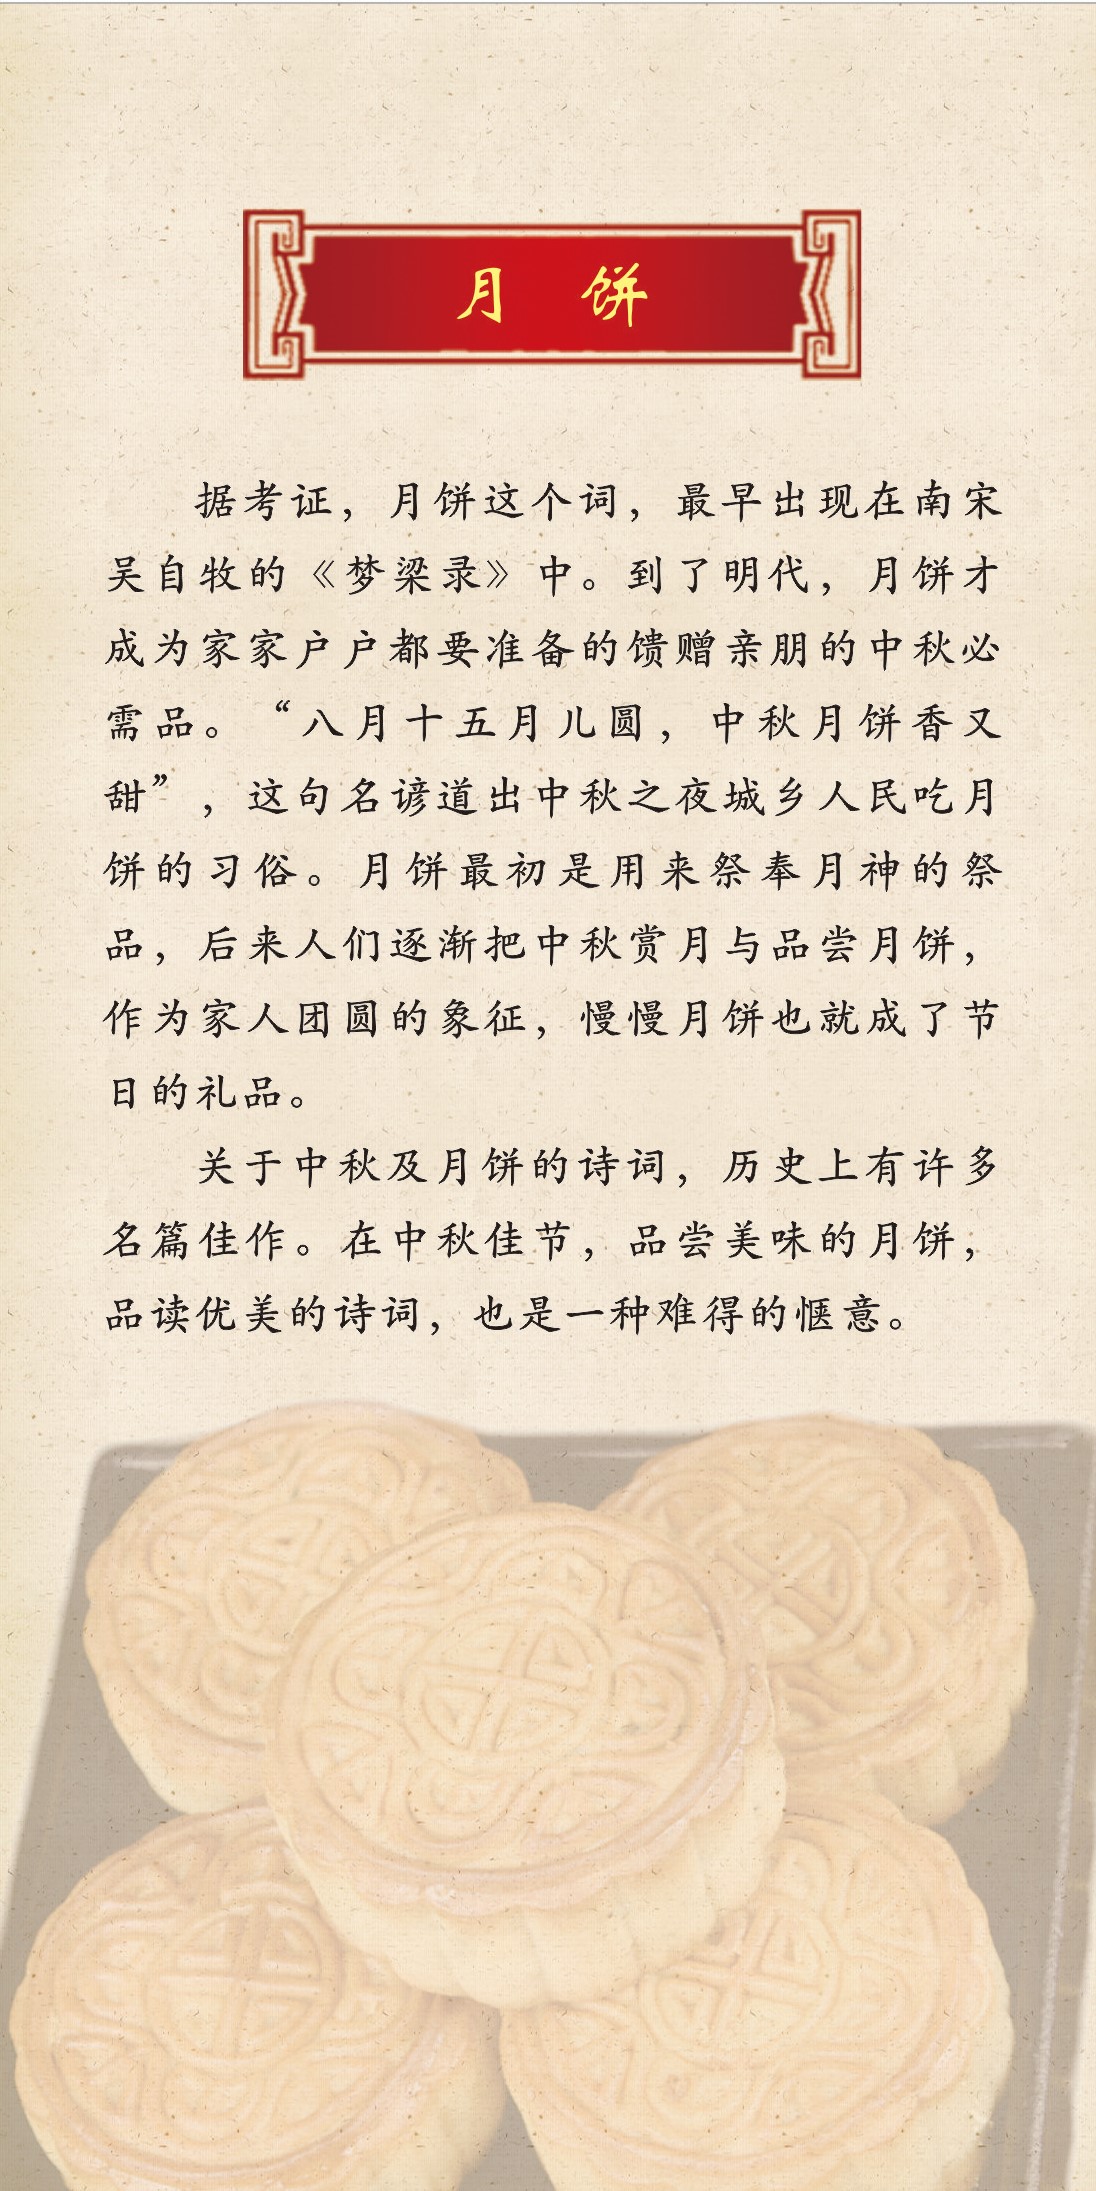 月 饼
据考证，月饼这个词，最早出现在南宋
吴自牧的《梦梁录》中。到了明代，月饼才
成为家家户户都要准备的馈赠亲朋的中秋必
需品。“八月十五月儿圆，中秋月饼香又
甜”，这句名谚道出中秋之夜城乡人民吃月
饼的习俗。月饼最初是用来祭奉月神的祭
品，后来人们逐渐把中秋赏月与品尝月饼，
作为家人团圆的象征，慢慢月饼也就成了节
日的礼品。
关于中秋及月饼的诗词，历史上有许多
名篇佳作。在中秋佳节，品尝美味的月饼，
品读优美的诗词，也是一种难得的惬意。